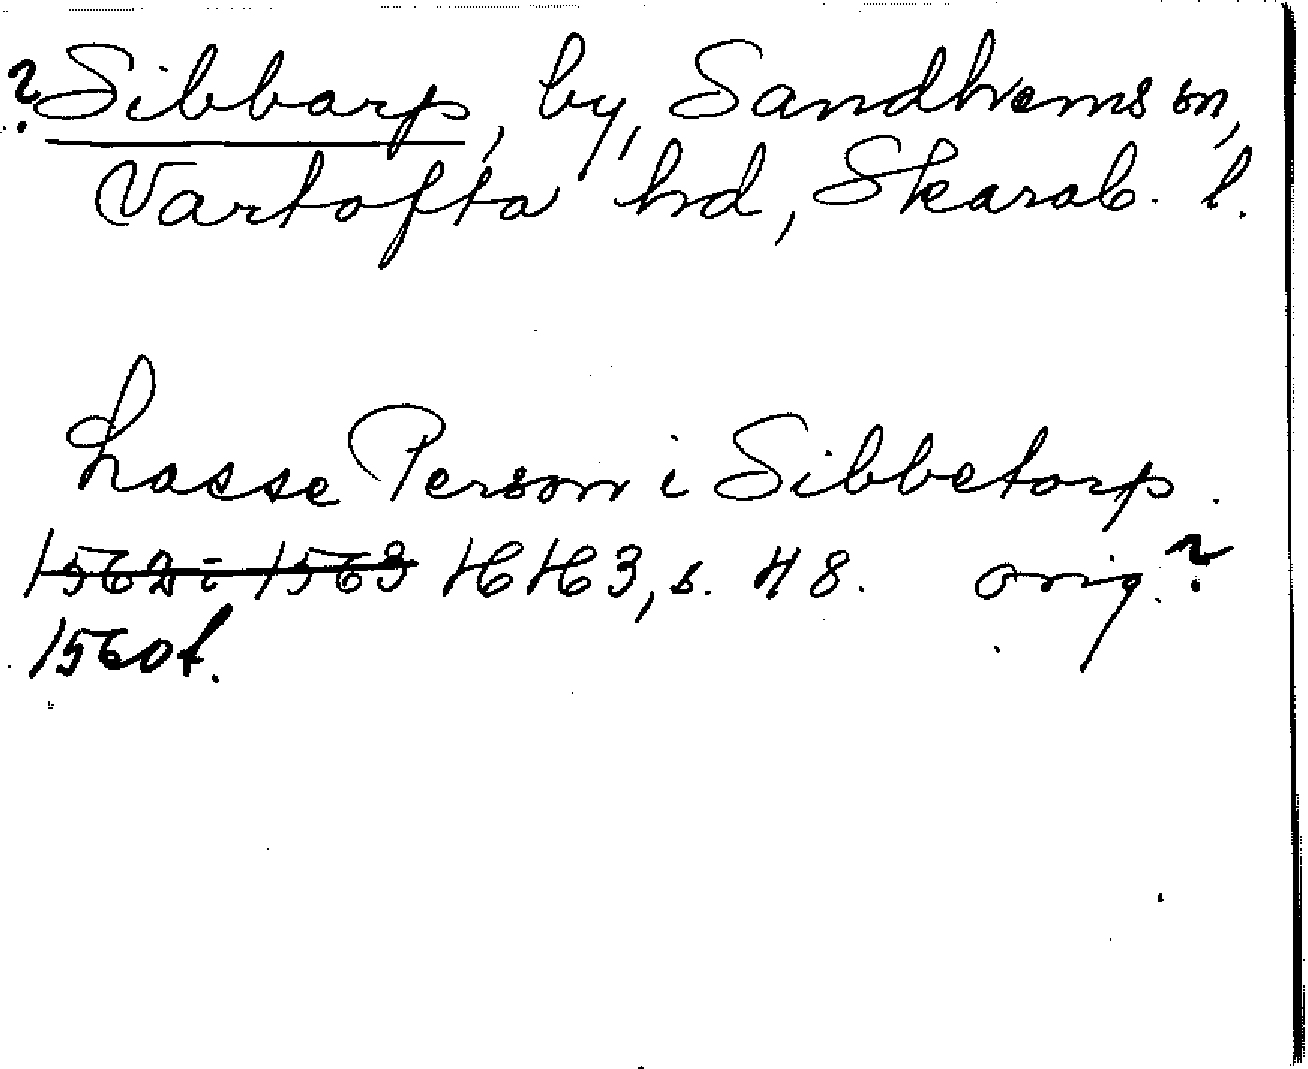 ? Sibbarp, by, Sandhems sn,
Vartofta hd, Skarab. l.
Lasse Person i Sibbetorp.
1562 i 1563 HH 3, s. 48. orig. ?
1560 f.